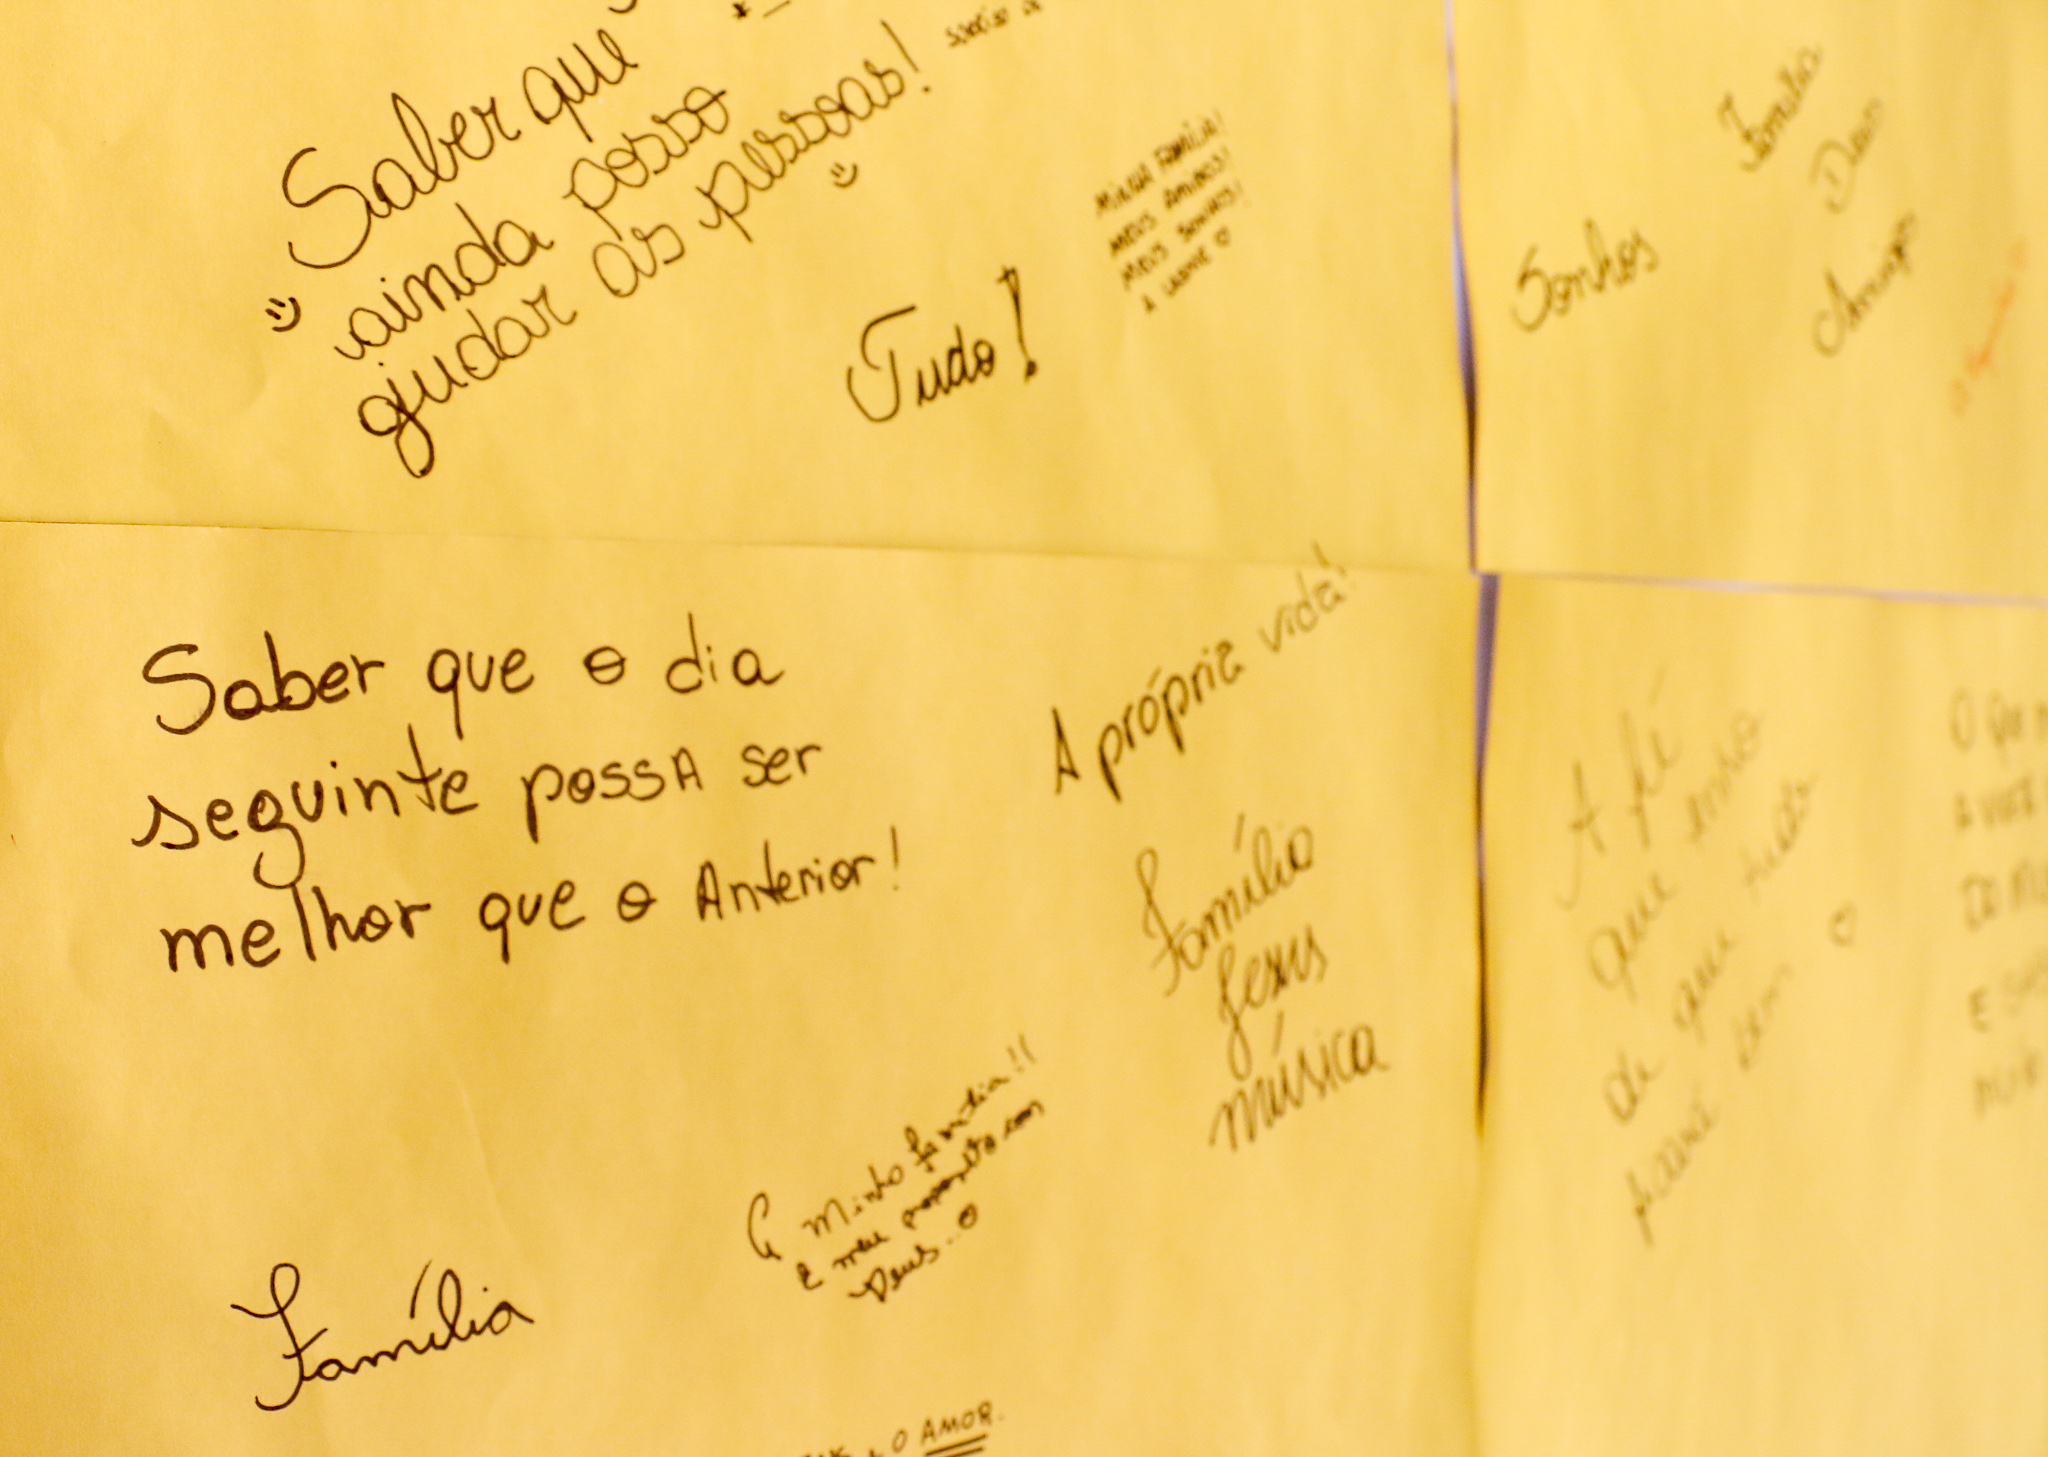 Saber que
ainda posso
ajudar as pessoas!
Tudo!
MINHA FAMÍLIA!
MEUS AMIGOS!
MEUS SONHOS!
Sonhos
Família
Deus
Amigos
Saber que o dia
seguinte possA ser
melhor que o Anterior!
A própria vida!
Família
Jesus
música
A fé
que tenho
de que tudo
ficará bem
O que
A minha família!!
e meu propósito com
Deus...
Família
O AMOR.